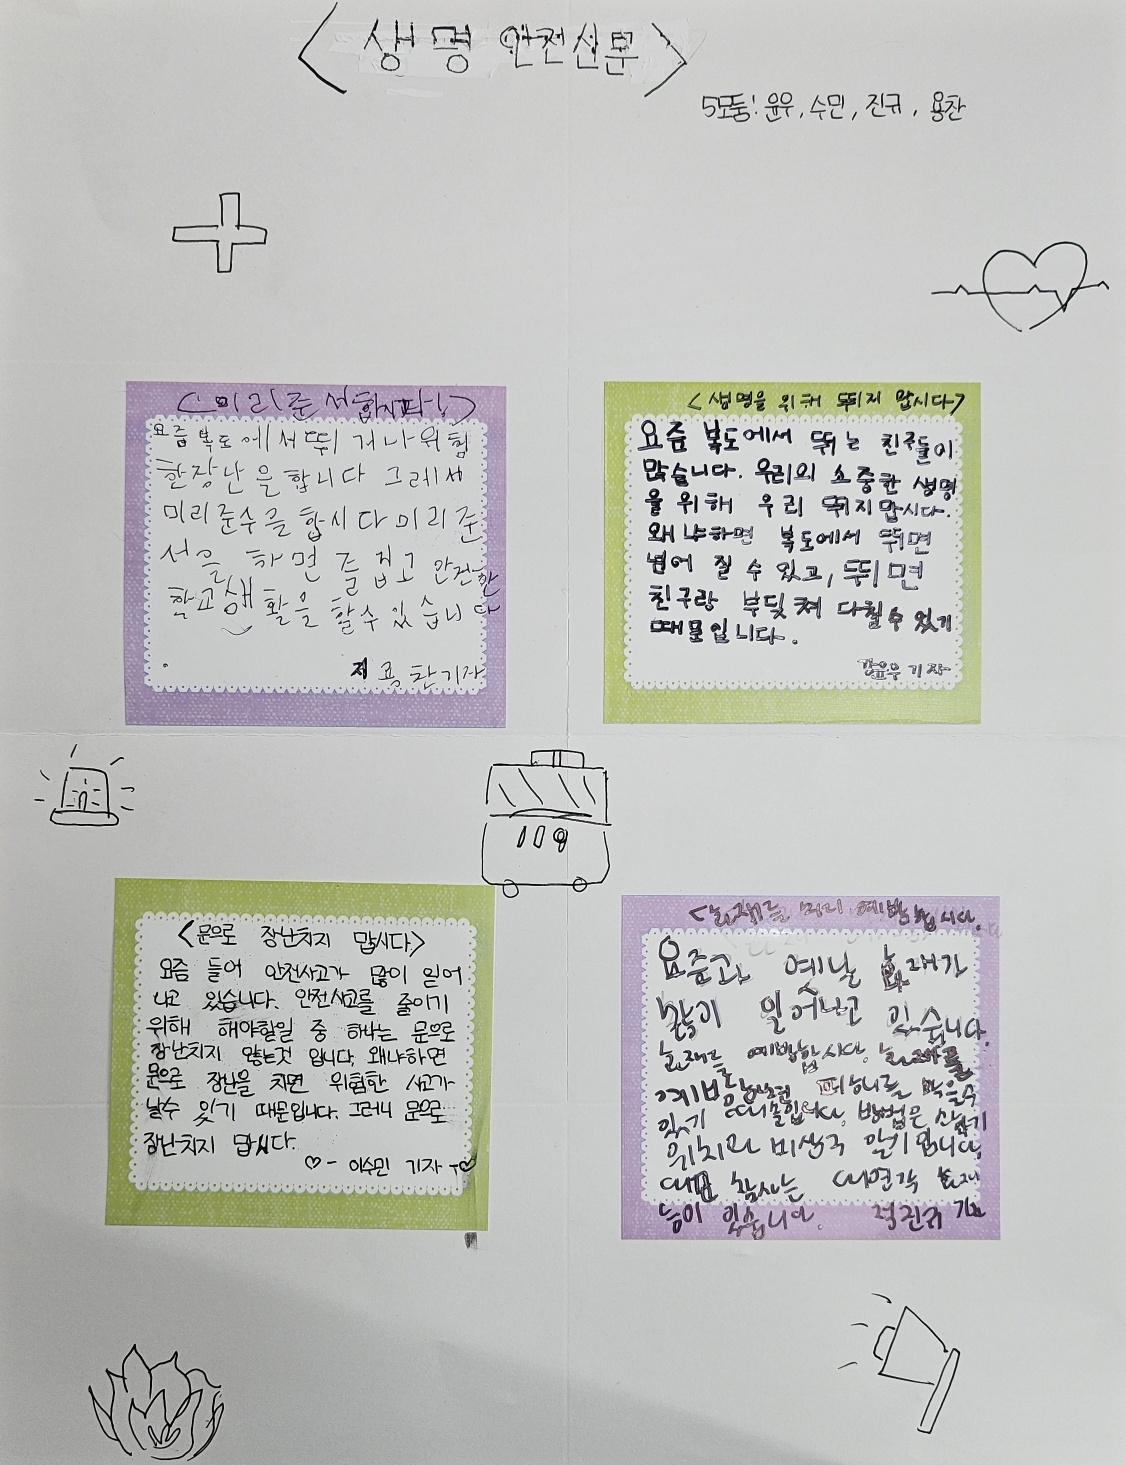 <생명 안전신문>
5모둠: 윤우, 수민, 진규, 용찬
<미리준서합시다!>
요즘 복도에서뛰거나위험
한장난을합니다 그레서
미리준수를합시다미리준
서을 하면 즐겁고 안전한
학교생활을 할수있습니다
.
용찬기자
<생명을 위해 뛰지 맙시다>
요즘 복도에서 뛰는 친구들이
많습니다. 우리의 소중한 생명
을 위해 우리 뛰지맙시다.
왜냐하면 복도에서 뛰면
넘어 질 수 있고, 뛰면
친구랑 부딪쳐 다칠수 있기
때문입니다.
강윤우 기자
119
<문으로 장난치지 맙시다>
요즘 들어 안전사고가 많이 일어
나고 있습니다. 안전사고를 줄이기
위해 해야할일 중 하나는 문으로
장난치지 않는것 입니다. 왜냐하면
문으로 장난을 치면 위험한 사고가
날수 있기 때문입니다. 그러니 문으로
장난치지 맙시다.
♡- 이수민 기자 -♡
미리 예방합시다.
요즘과 옛날
많이 일어나고 있습니다.
예방합시다.
예방하면 피해를 막을수
있기 때문입니다. 방법은
위치와 비상구 알기 입니다.
참사는
등이 있습니다. 진규 기자